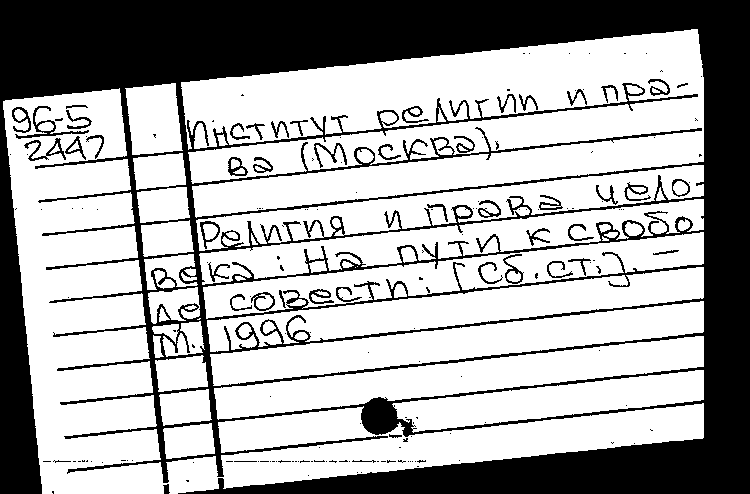 96-5
2447
Институт религии и пра-
ва (Москва).
Религия и права чело-
века: На пути к свобо-
де совести: [Сб.ст.]. —
М., 1996.